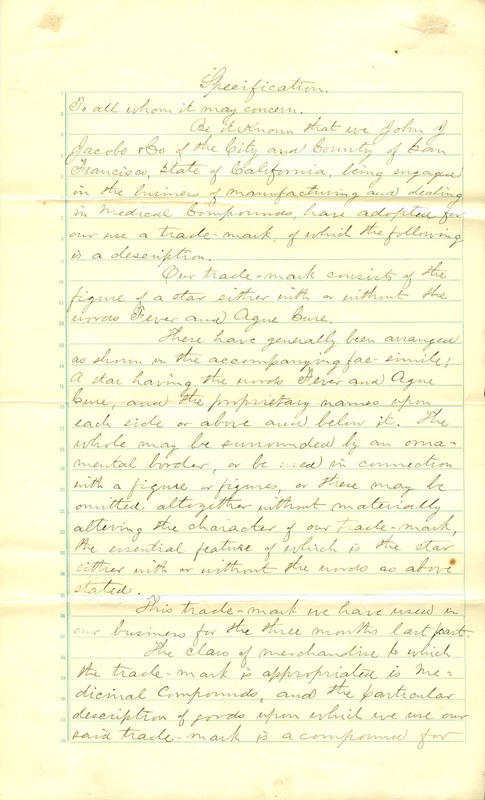 Specification.
To all whom it may concern.
Be it Known that we John J
Jacobs & Co of the City and County of San
Francisco, State of California, being engaged
in the business of manufacturing and dealing
in Medical Compounds, have adopted for
our use a trade-mark, of which the following
is a description.
Our trade-mark consists of the
figure of a star either with or without the
words Fever and Ague Cure.
These have generally been arranged
as shown in the accompanying fac-simile;
A star having the words Fever and Ague
Cure, and the proprietary names upon
each side or above and below it. The
whole may be surrounded by an orna-
mental border, or be used in connection
with a figure or figures, or these may be
omitted altogether without materially
altering the character of our trade-mark,
the essential feature of which is the star
either with or without the words as above
stated.
This trade-mark we have used in
our business for the three months last past.
The class of merchandise to which
the trade-mark is appropriated is Me-
dicinal Compounds, and the particular
description of goods upon which we use our
said trade-mark is a compound for